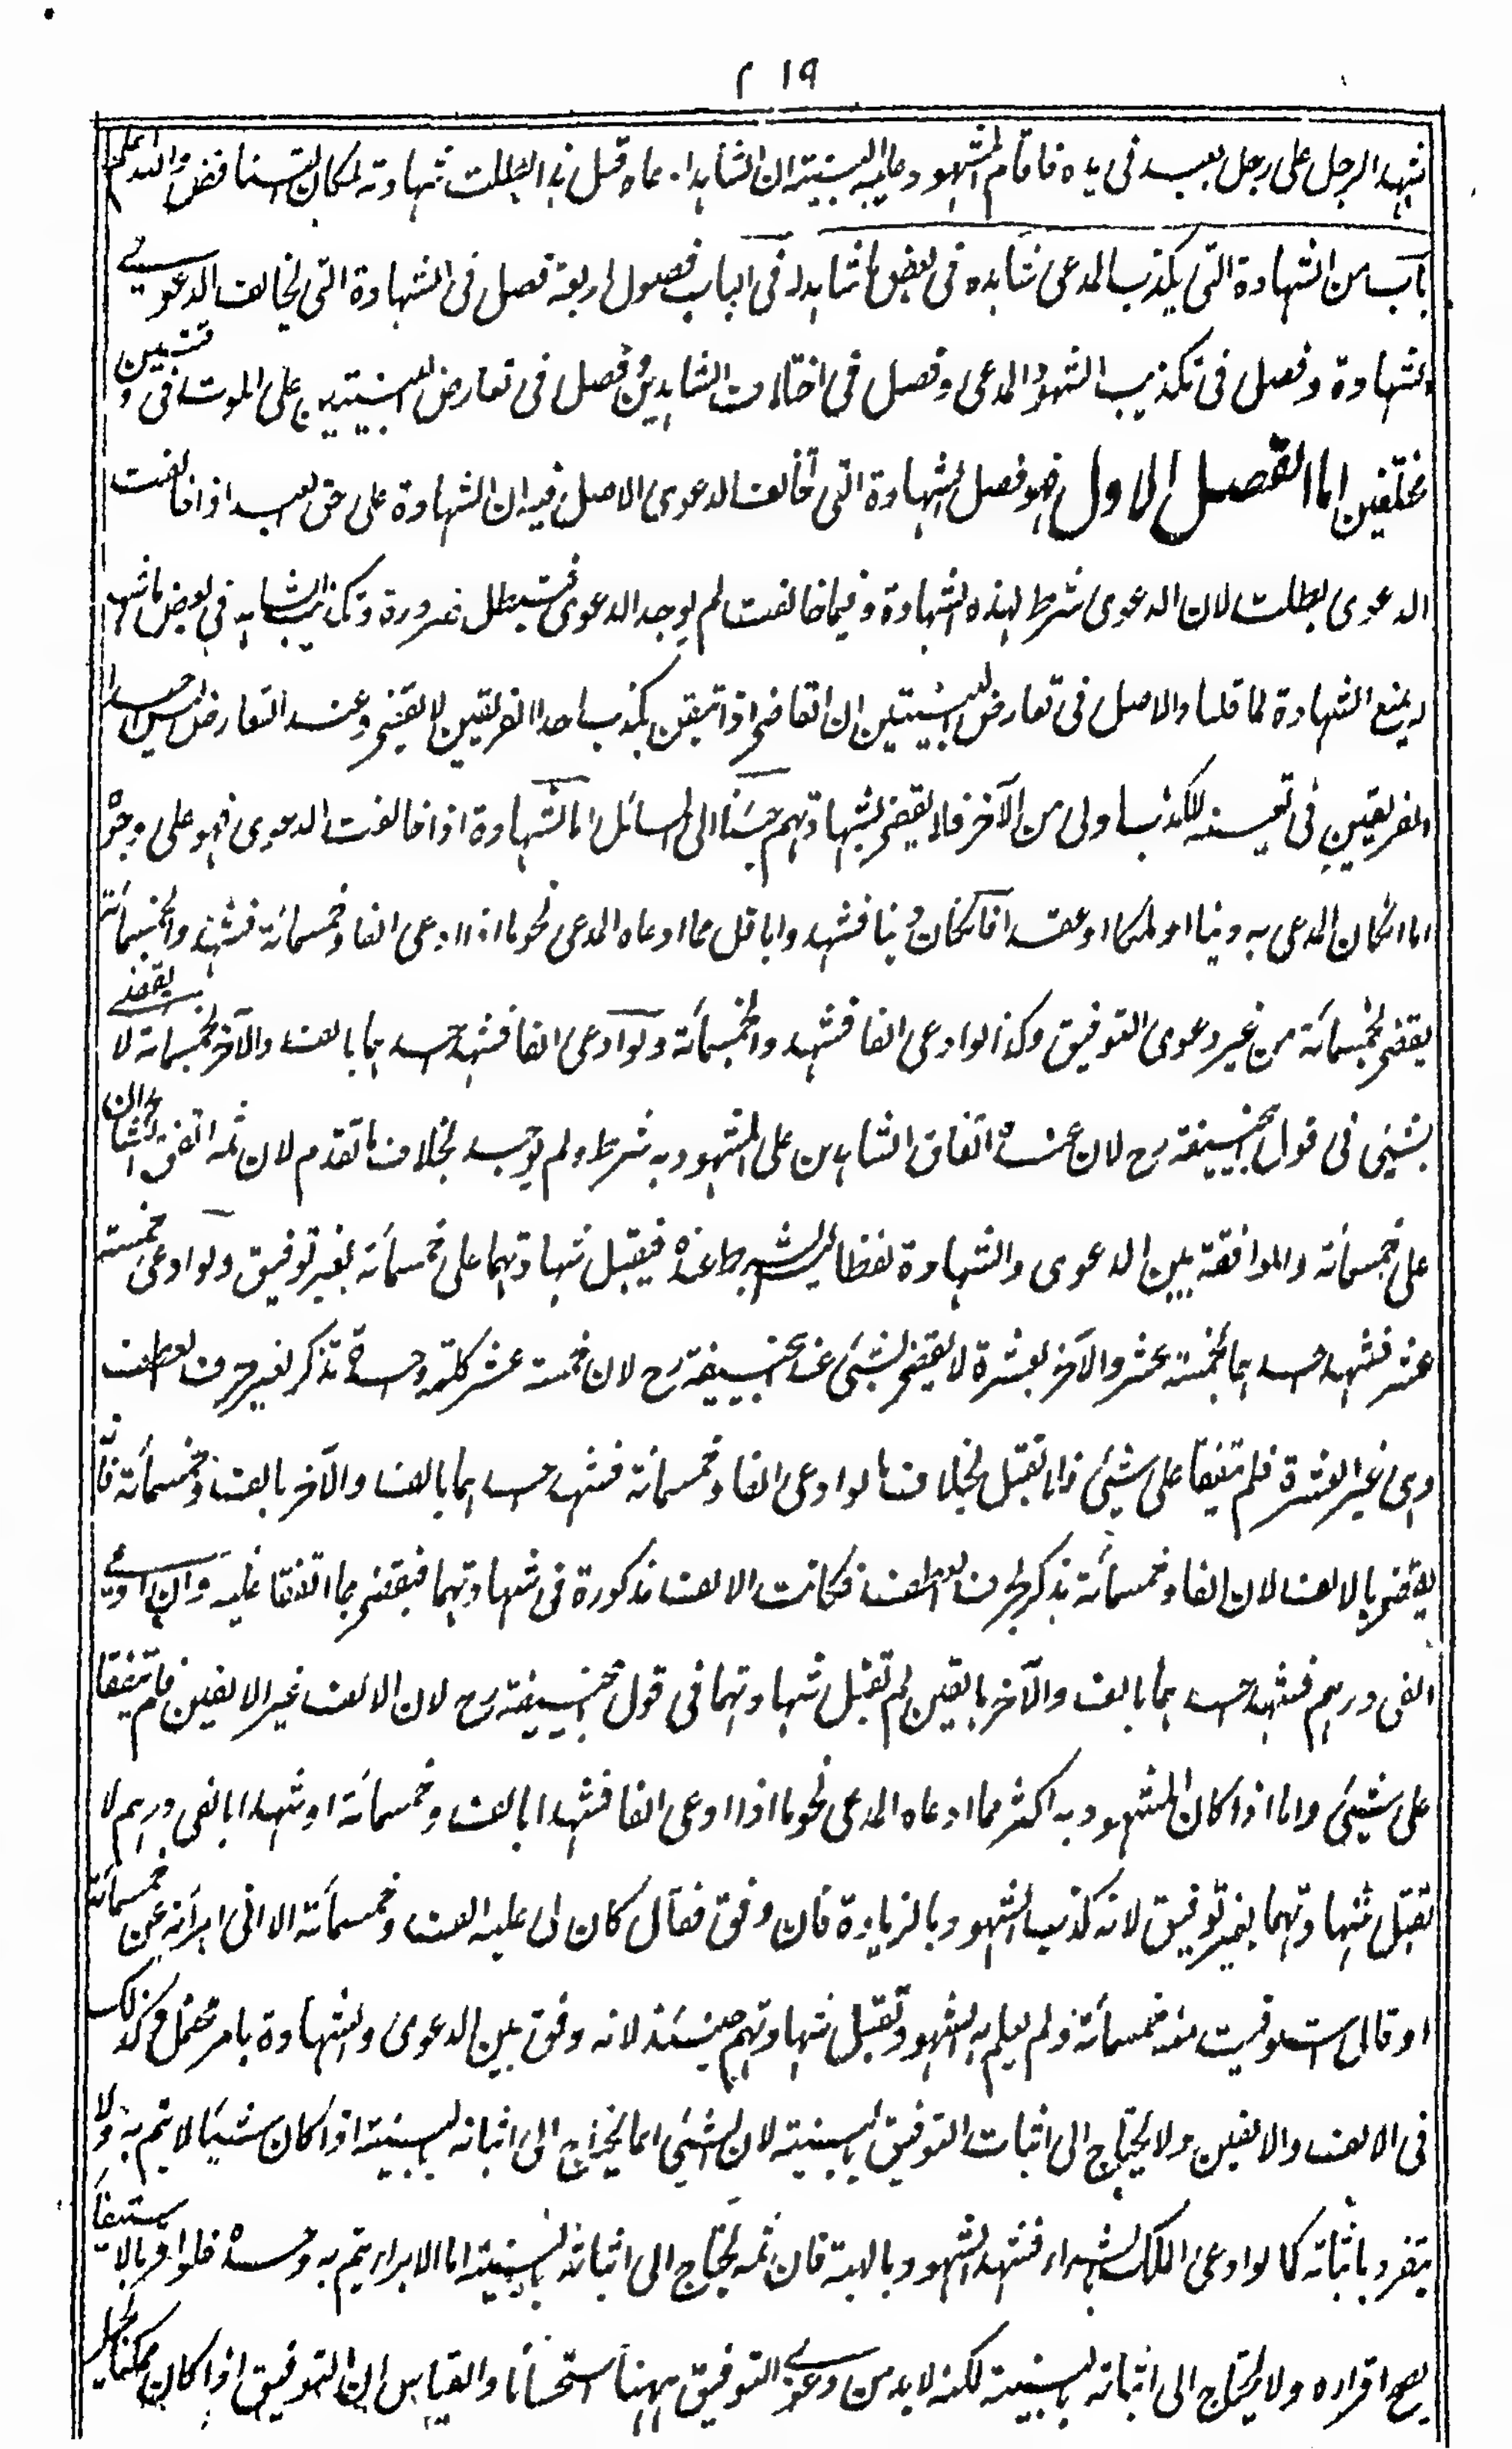 ٢١٩
شهد الرجل على رجل بعبد فى يده فاقام المشهود عليه البينة ان الشاهد ادعاه قبل هذا بطلت شهادته لمكان التناقض والله اعلم
باب من الشهادة التى يكذب المدعى شاهده فى بعض ما شهد له فى الباب فصول اربعة فصل فى الشهادة التى تخالف الدعوى
والشهادة وفصل فى تكذيب الشهود المدعى وفصل فى اختلاف الشاهدين وفصل فى تعارض البينتين على الموت فى وقتين
مختلفين اما الفصل الاول فهو فصل الشهادة التى تخالف الدعوى الاصل فيه ان الشهادة على حق العبد اذا خالفت
الدعوى بطلت لان الدعوى شرط لهذه الشهادة وفيما خالفت لم يوجد الدعوى فتبطل ضرورة وتكذيب الشاهد فى بعض ما شهد
له يمنع الشهادة لما قلنا والاصل فى تعارض البينتين ان القاضى اذا تيقن بكذب احد الفريقين لا يقضى وعند التعارض ليس احد
الفريقين فى تعيينه للكذب اولى من الآخر فلا يقضى بشهادتهم جئنا الى المسائل اما الشهادة اذا خالفت الدعوى فهو على وجوه
اما ان كان المدعى به دينا او ملكا او عقدا فان كان دينا فشهدوا باقل مما ادعاه المدعى نحو ما اذا ادعى الفا وخمسمائة فشهدوا بخمسمائة
يقضى بخمسمائة من غير دعوى التوفيق وكذا لو ادعى الفا فشهدوا بخمسمائة ولو ادعى الفا فشهد احدهما بالف والآخر بخمسمائة لا يقضى
بشئ فى قول ابى حنيفة رح لان عنده اتفاق الشاهدين على المشهود به شرط ولم يوجد بخلاف ما تقدم لان ثمه اتفق الشاهدان
على خمسمائة والموافقة بين الدعوى والشهادة لفظا ليس بشرط عنده فيقبل شهادتهما على خمسمائة بغير توفيق ولو ادعى خمسة
عشر فشهد احدهما بخمسة عشر والآخر بعشرة لا يقضى بشئ عند ابى حنيفة رح لان خمسة عشر كلمة واحدة تذكر بغير حرف العطف
وهى غير العشرة فلم يتفقا على شئ فلا تقبل بخلاف ما لو ادعى الفا وخمسمائة فشهد احدهما بالف والآخر بالف وخمسمائة فانه
يقضى بالالف لان الفا وخمسمائة يذكر بحرف العطف فكانت الالف مذكورة فى شهادتهما فيقضى بما اتفقا عليه وان ادعى
الفى درهم فشهد احدهما بالف والآخر بالفين لم تقبل شهادتهما فى قول ابى حنيفة رح لان الالف غير الالفين فلم يتفقا
على شئ واما اذا كان المشهود به اكثر مما ادعاه المدعى نحو ما اذا ادعى الفا فشهدا بالف وخمسمائة او شهدا بالفى درهم لا
تقبل شهادتهما بغير توفيق لانه كذب الشهود بالزيادة فان وفق فقال كان لى عليه الف وخمسمائة الا انى ابرأته عن خمسمائة
او قال استوفيت منه خمسمائة ولم يعلم به الشهود تقبل شهادتهم حينئذ لانه وفق بين الدعوى والشهادة بامر محتمل وكذلك
فى الالف والالفين ولا يحتاج الى اثبات التوفيق بالبينة لان الشئ انما يحتاج الى اثباته بالبينة اذا كان شيئا لا يتم به ولا
يتفرد باثباته كما لو ادعى الملك بالشراء فشهد الشهود بالهبة فان ثمه يحتاج الى اثباته بالبينة اما الابراء يتم به وحده فلو اقر بالاستيفاء
يصح اقراره ولا يحتاج الى اثباته بالبينة لكنه لا بد من دعوى التوفيق ههنا استحسانا والقياس ان التوفيق اذا كان ممكنا يحمل